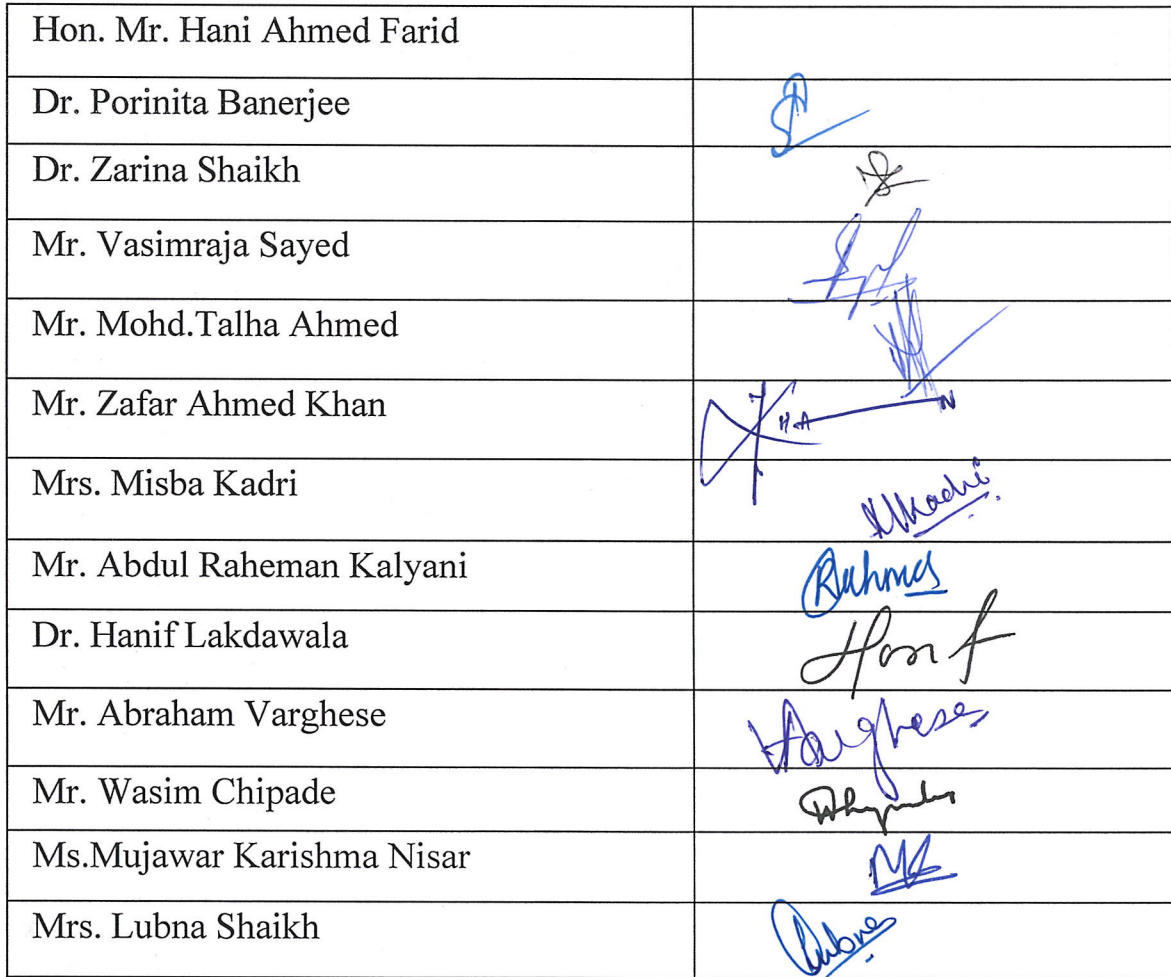 Hon. Mr. Hani Ahmed Farid
Dr. Porinita Banerjee
Dr. Zarina Shaikh
Mr. Vasimraja Sayed
Mr. Mohd.Talha Ahmed
Mr. Zafar Ahmed Khan KHAN
Mrs. Misba Kadri MKadri
Mr. Abdul Raheman Kalyani
Dr. Hanif Lakdawala Hanif
Mr. Abraham Varghese Varghese
Mr. Wasim Chipade
Ms.Mujawar Karishma Nisar
Mrs. Lubna Shaikh Lubna